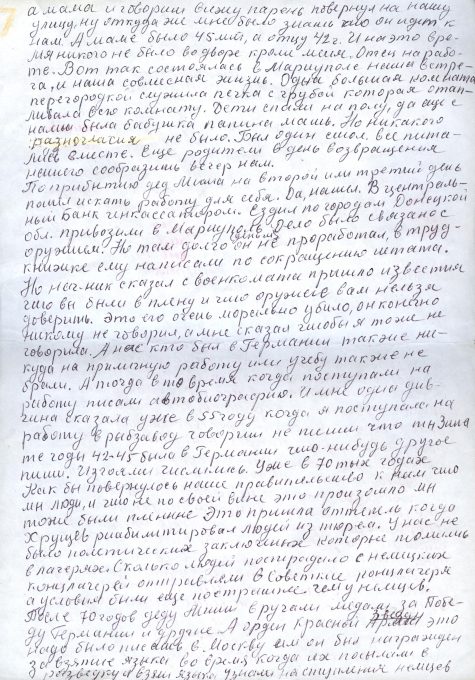 7
а мама и говорит вижу парень повернул на нашу
улицу, ну откуда же мне было знать что он идет к
нам. А маме было 45 лет, а отцу 42 г. И на это вре-
мя никого не было во дворе кроме меня. Отец на рабо-
те. Вот так состоялась в Мариуполе наша встре-
ча, и наша совместная жизнь. Одна большая комната
перегородкой служила печка с грубой которая отап-
ливала всю комнату. Дети спали на полу, да еще с
нами была бабушка папина мать. Но никакого
разногласия не было. Был один стол, все пита-
лись вместе. Еще родители в день возвращения
нашего сообразили вечер нам.
По прибытию дед Миша на второй или третий день
пошел искать работу для себя. Да, нашел. В централь-
ный Банк инкассатором. Ездил по городам Донецкой
обл. привозили в Мариуполь деньги. Дело было связано с
оружием. Но там долго он не проработал, в труд-
книжке ему написали по сокращению штата.
Но нач-ник сказал с военкомата пришло известие
что вы были в плену и что оружие вам нельзя
доверить. Это его очень морально убило, он конечно
никому не говорил, а мне сказал чтобы я тоже не
говорила. А нас кто был в Германии также ни-
куда на приличную работу или учебу также не
брали. А тогда в то время когда поступали на
работу писали автобиографию. И мне одна див-
чина сказала уже в 55 году когда я поступала на
работу в рыбзавод говорит не пиши что ты Зина
те годы 42-45 была в Германии что-нибудь другое
пиши. Изгоями числились. Уже в 70тых годах
как бы повернулось наше правительство к нам что
мы люди, и что не по своей вине это произошло мы
тоже были пленные Это пришла оттепель когда
Хрущев реабилитировал людей из тюрем. У нас не
было политических заключеных которые томились
в лагерях. Сколько людей пострадало с немецких
концлагерей отправляли в Советские концлагеря
а условия были еще пострашнее чем у немцев.
После 70 годов деду Миши вручали медаль за Побе-
ду Германии и другие. А орден Красной Звезды это
надо было писать в Москву им он был награжден
за взятие языка во время когда их посылали в
разведку и взяли языка узнали наступления немцев